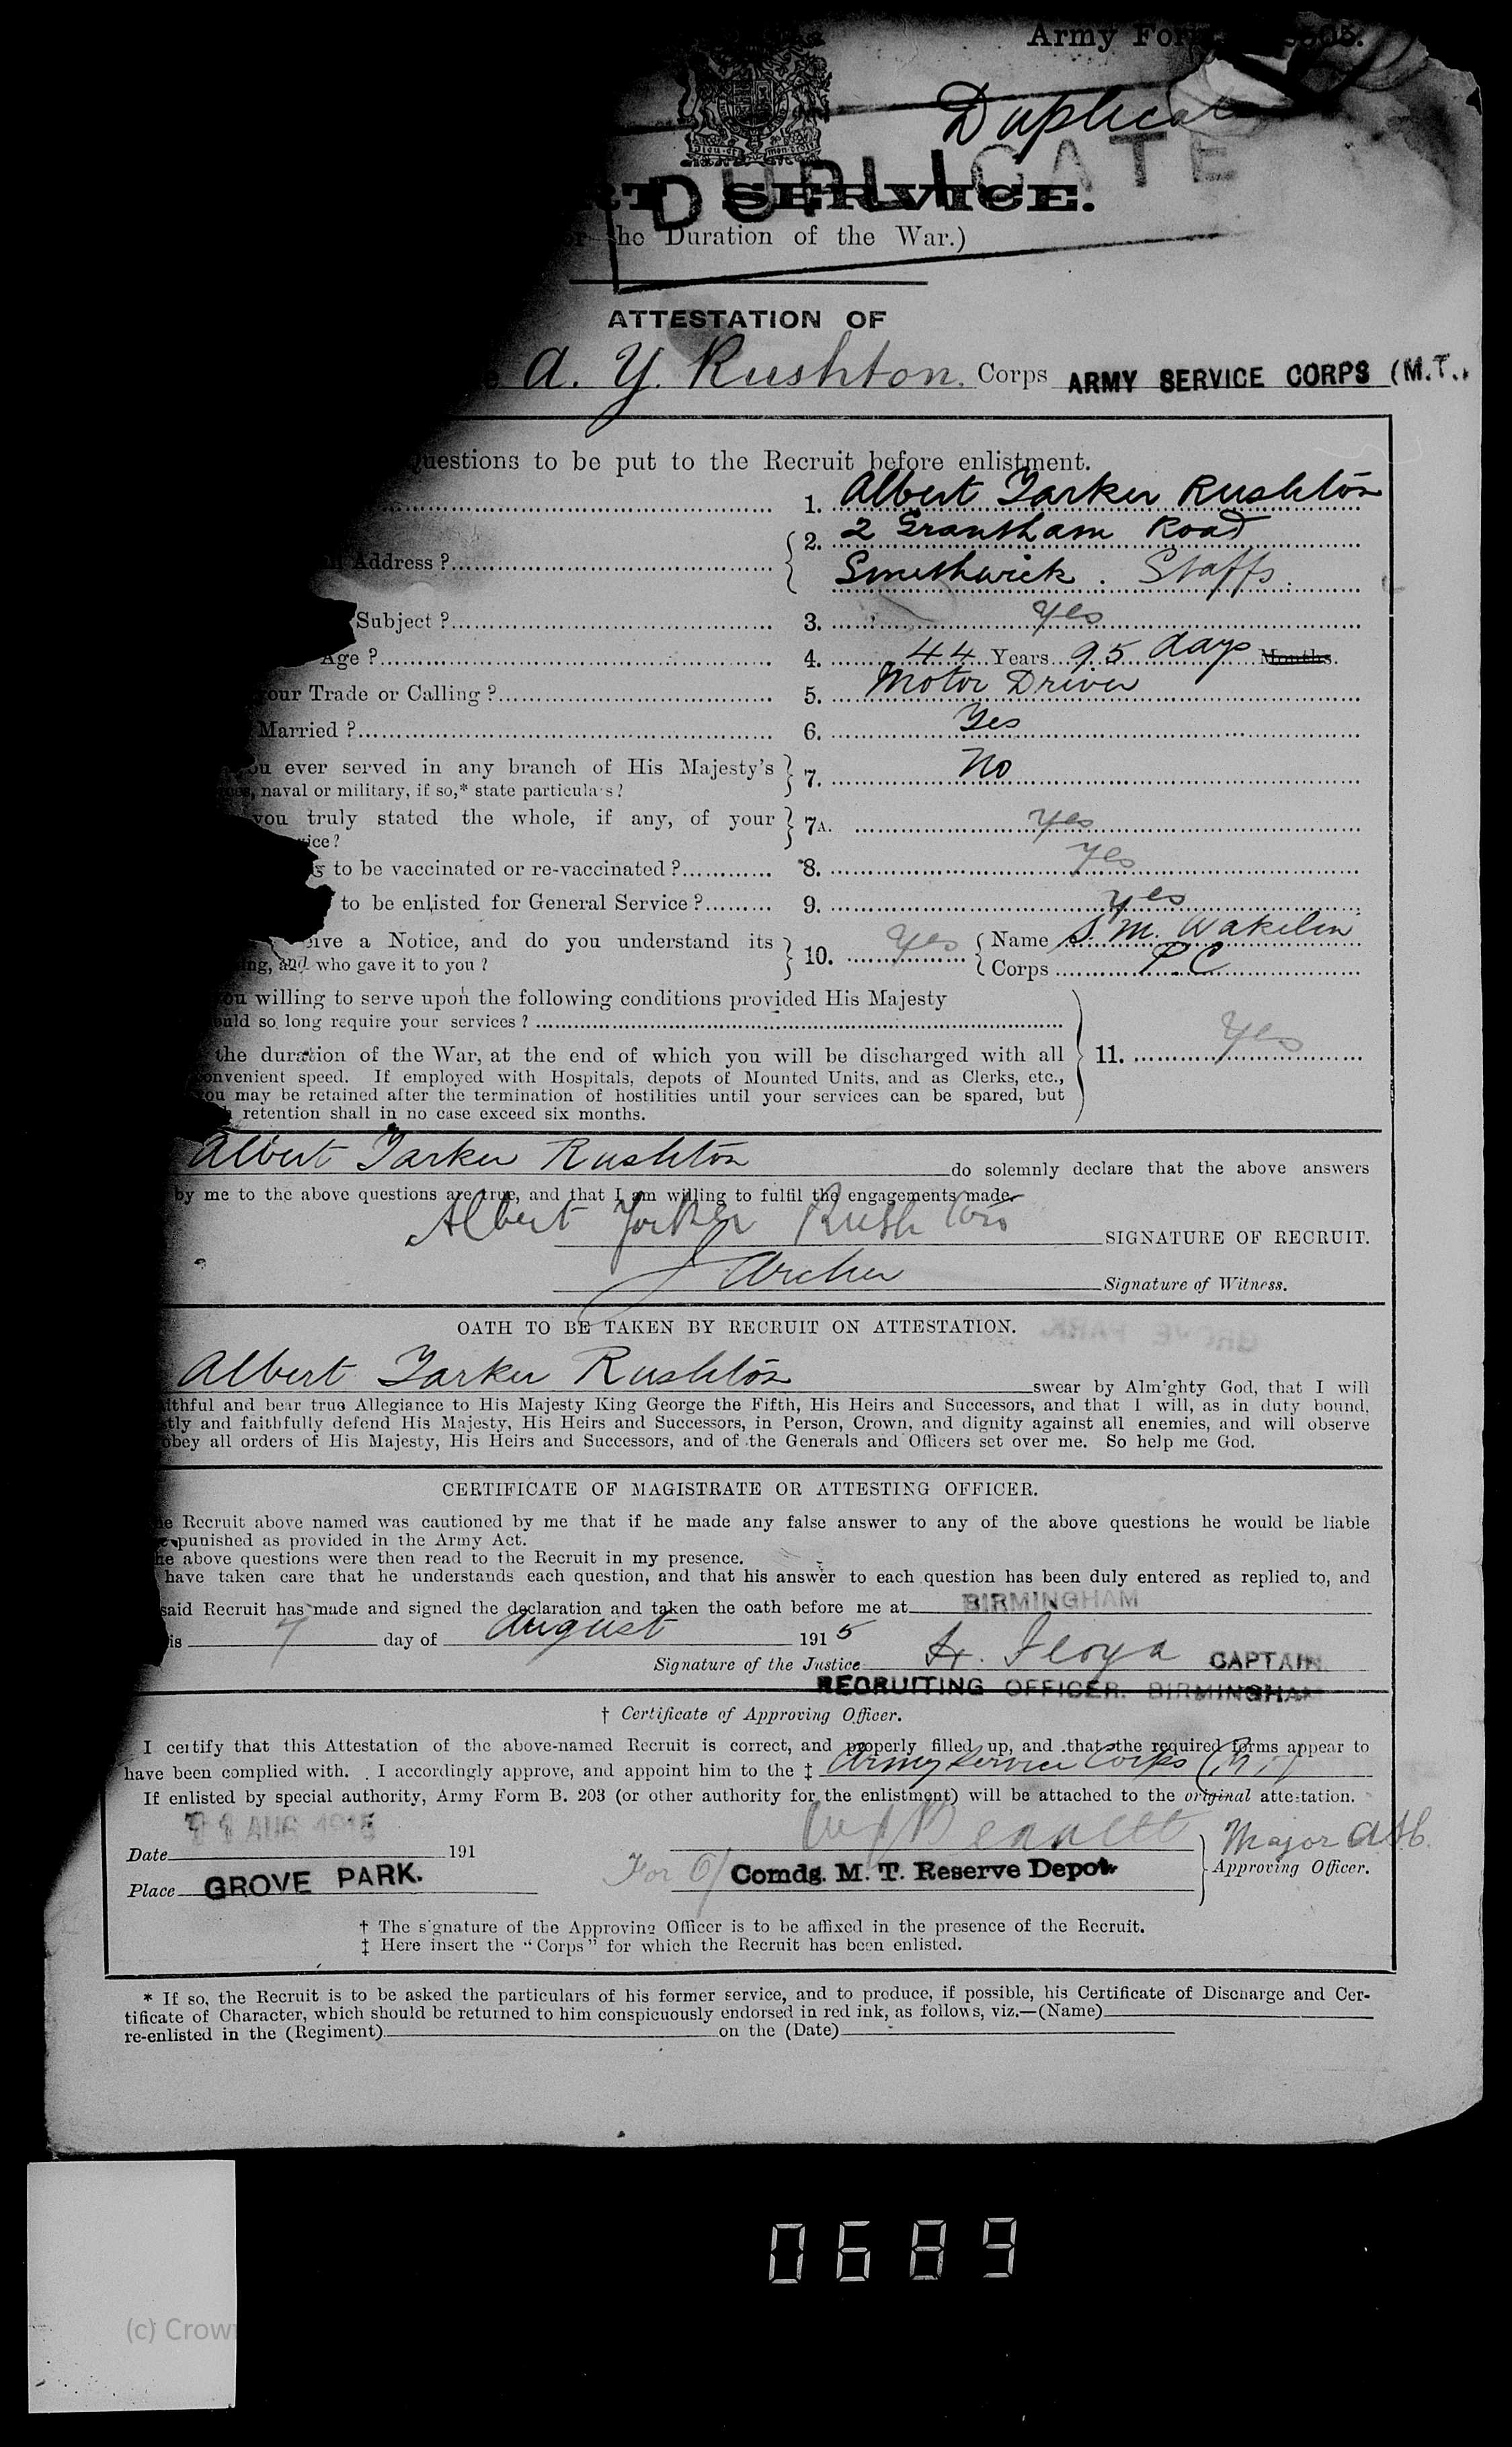 Army For
Duplicat
DUPLICATE
RT SERVICE.
the Duration of the War.)
ATTESTATION OF
A. Y. Rushton. Corps ARMY SERVICE CORPS (M.T.
uestions to be put to the Recruit before enlistment.
1. Albert Yarker Rushton
Address ? 2. 2 Grantham Road
Smethwick. Staffs.
Subject ? 3. Yes
Age ? 4. 44 Years 95 days Months.
our Trade or Calling ? 5. Motor Driver
Married ? 6. Yes
ou ever served in any branch of His Majesty's 7. No
naval or military, if so,* state particulars?
you truly stated the whole, if any, of your 7A. Yes
ice?
to be vaccinated or re-vaccinated ? 8. Yes
to be enlisted for General Service ? 9. Yes
eive a Notice, and do you understand its 10. Yes Name S. M. Wakelin
ing, and who gave it to you ? Corps P.C
ou willing to serve upon the following conditions provided His Majesty
ould so long require your services ?
the duration of the War, at the end of which you will be discharged with all 11. Yes
onvenient speed. If employed with Hospitals, depots of Mounted Units, and as Clerks, etc.,
ou may be retained after the termination of hostilities until your services can be spared, but
h retention shall in no case exceed six months.
Albert Yarker Rushton do solemnly declare that the above answers
by me to the above questions are true, and that I am willing to fulfil the engagements made.
Albert Yarker Rushton SIGNATURE OF RECRUIT.
J Archer Signature of Witness.
OATH TO BE TAKEN BY RECRUIT ON ATTESTATION.
Albert Yarker Rushton swear by Almighty God, that I will
ithful and bear true Allegiance to His Majesty King George the Fifth, His Heirs and Successors, and that I will, as in duty bound,
tly and faithfully defend His Majesty, His Heirs and Successors, in Person, Crown, and dignity against all enemies, and will observe
obey all orders of His Majesty, His Heirs and Successors, and of the Generals and Officers set over me. So help me God.
CERTIFICATE OF MAGISTRATE OR ATTESTING OFFICER.
e Recruit above named was cautioned by me that if he made any false answer to any of the above questions he would be liable
punished as provided in the Army Act.
he above questions were then read to the Recruit in my presence.
have taken care that he understands each question, and that his answer to each question has been duly entered as replied to, and
said Recruit has made and signed the declaration and taken the oath before me at BIRMINGHAM
is 7 day of August 1915
Signature of the Justice H. Lloyd CAPTAIN.
RECRUITING OFFICER. BIRMINGHAM
† Certificate of Approving Officer.
I certify that this Attestation of the above-named Recruit is correct, and properly filled up, and that the required forms appear to
have been complied with. I accordingly approve, and appoint him to the ‡ Army Service Corps (M.T.)
If enlisted by special authority, Army Form B. 203 (or other authority for the enlistment) will be attached to the original attestation.
11 AUG 1915
Date 191 Bennett Major ASC.
For O/ Comdg. M. T. Reserve Depot. Approving Officer.
Place GROVE PARK.
† The signature of the Approving Officer is to be affixed in the presence of the Recruit.
‡ Here insert the "Corps" for which the Recruit has been enlisted.
* If so, the Recruit is to be asked the particulars of his former service, and to produce, if possible, his Certificate of Discharge and Cer-
tificate of Character, which should be returned to him conspicuously endorsed in red ink, as follows, viz.—(Name)
re-enlisted in the (Regiment) on the (Date)
0689
(c) Crow